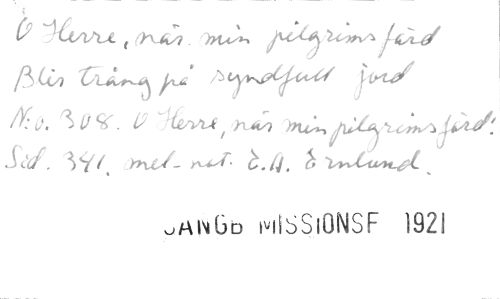 O Herre, när min pilgrimsfärd
Blir trång på syndfull jord
N:o. 308. O Herre, när min pilgrimsfärd.
Sid. 341. mel-not. E.A. Ernlund.
SANGB MISSIONSF 1921